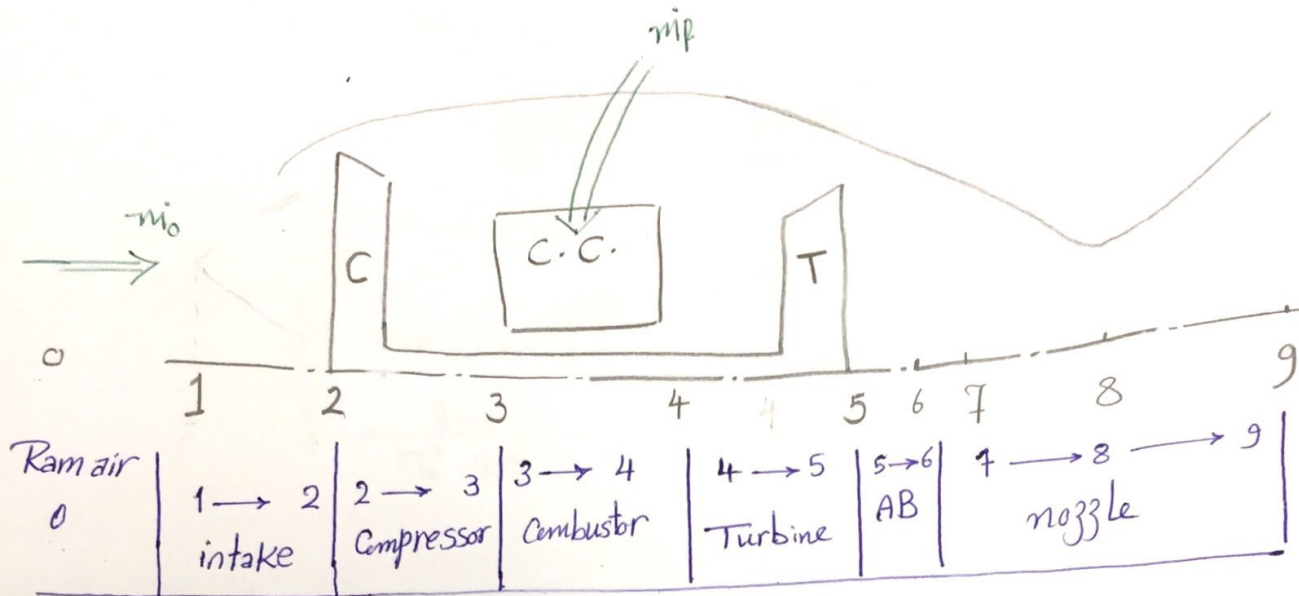 ṁf
ṁ₀
C
C.C.
T
0
1 2 3 4 5 6 7 8 9
Ram air
0
1 → 2
intake
2 → 3
Compressor
3 → 4
Combustor
4 → 5
Turbine
5→6
AB
7 → 8 → 9
nozzle